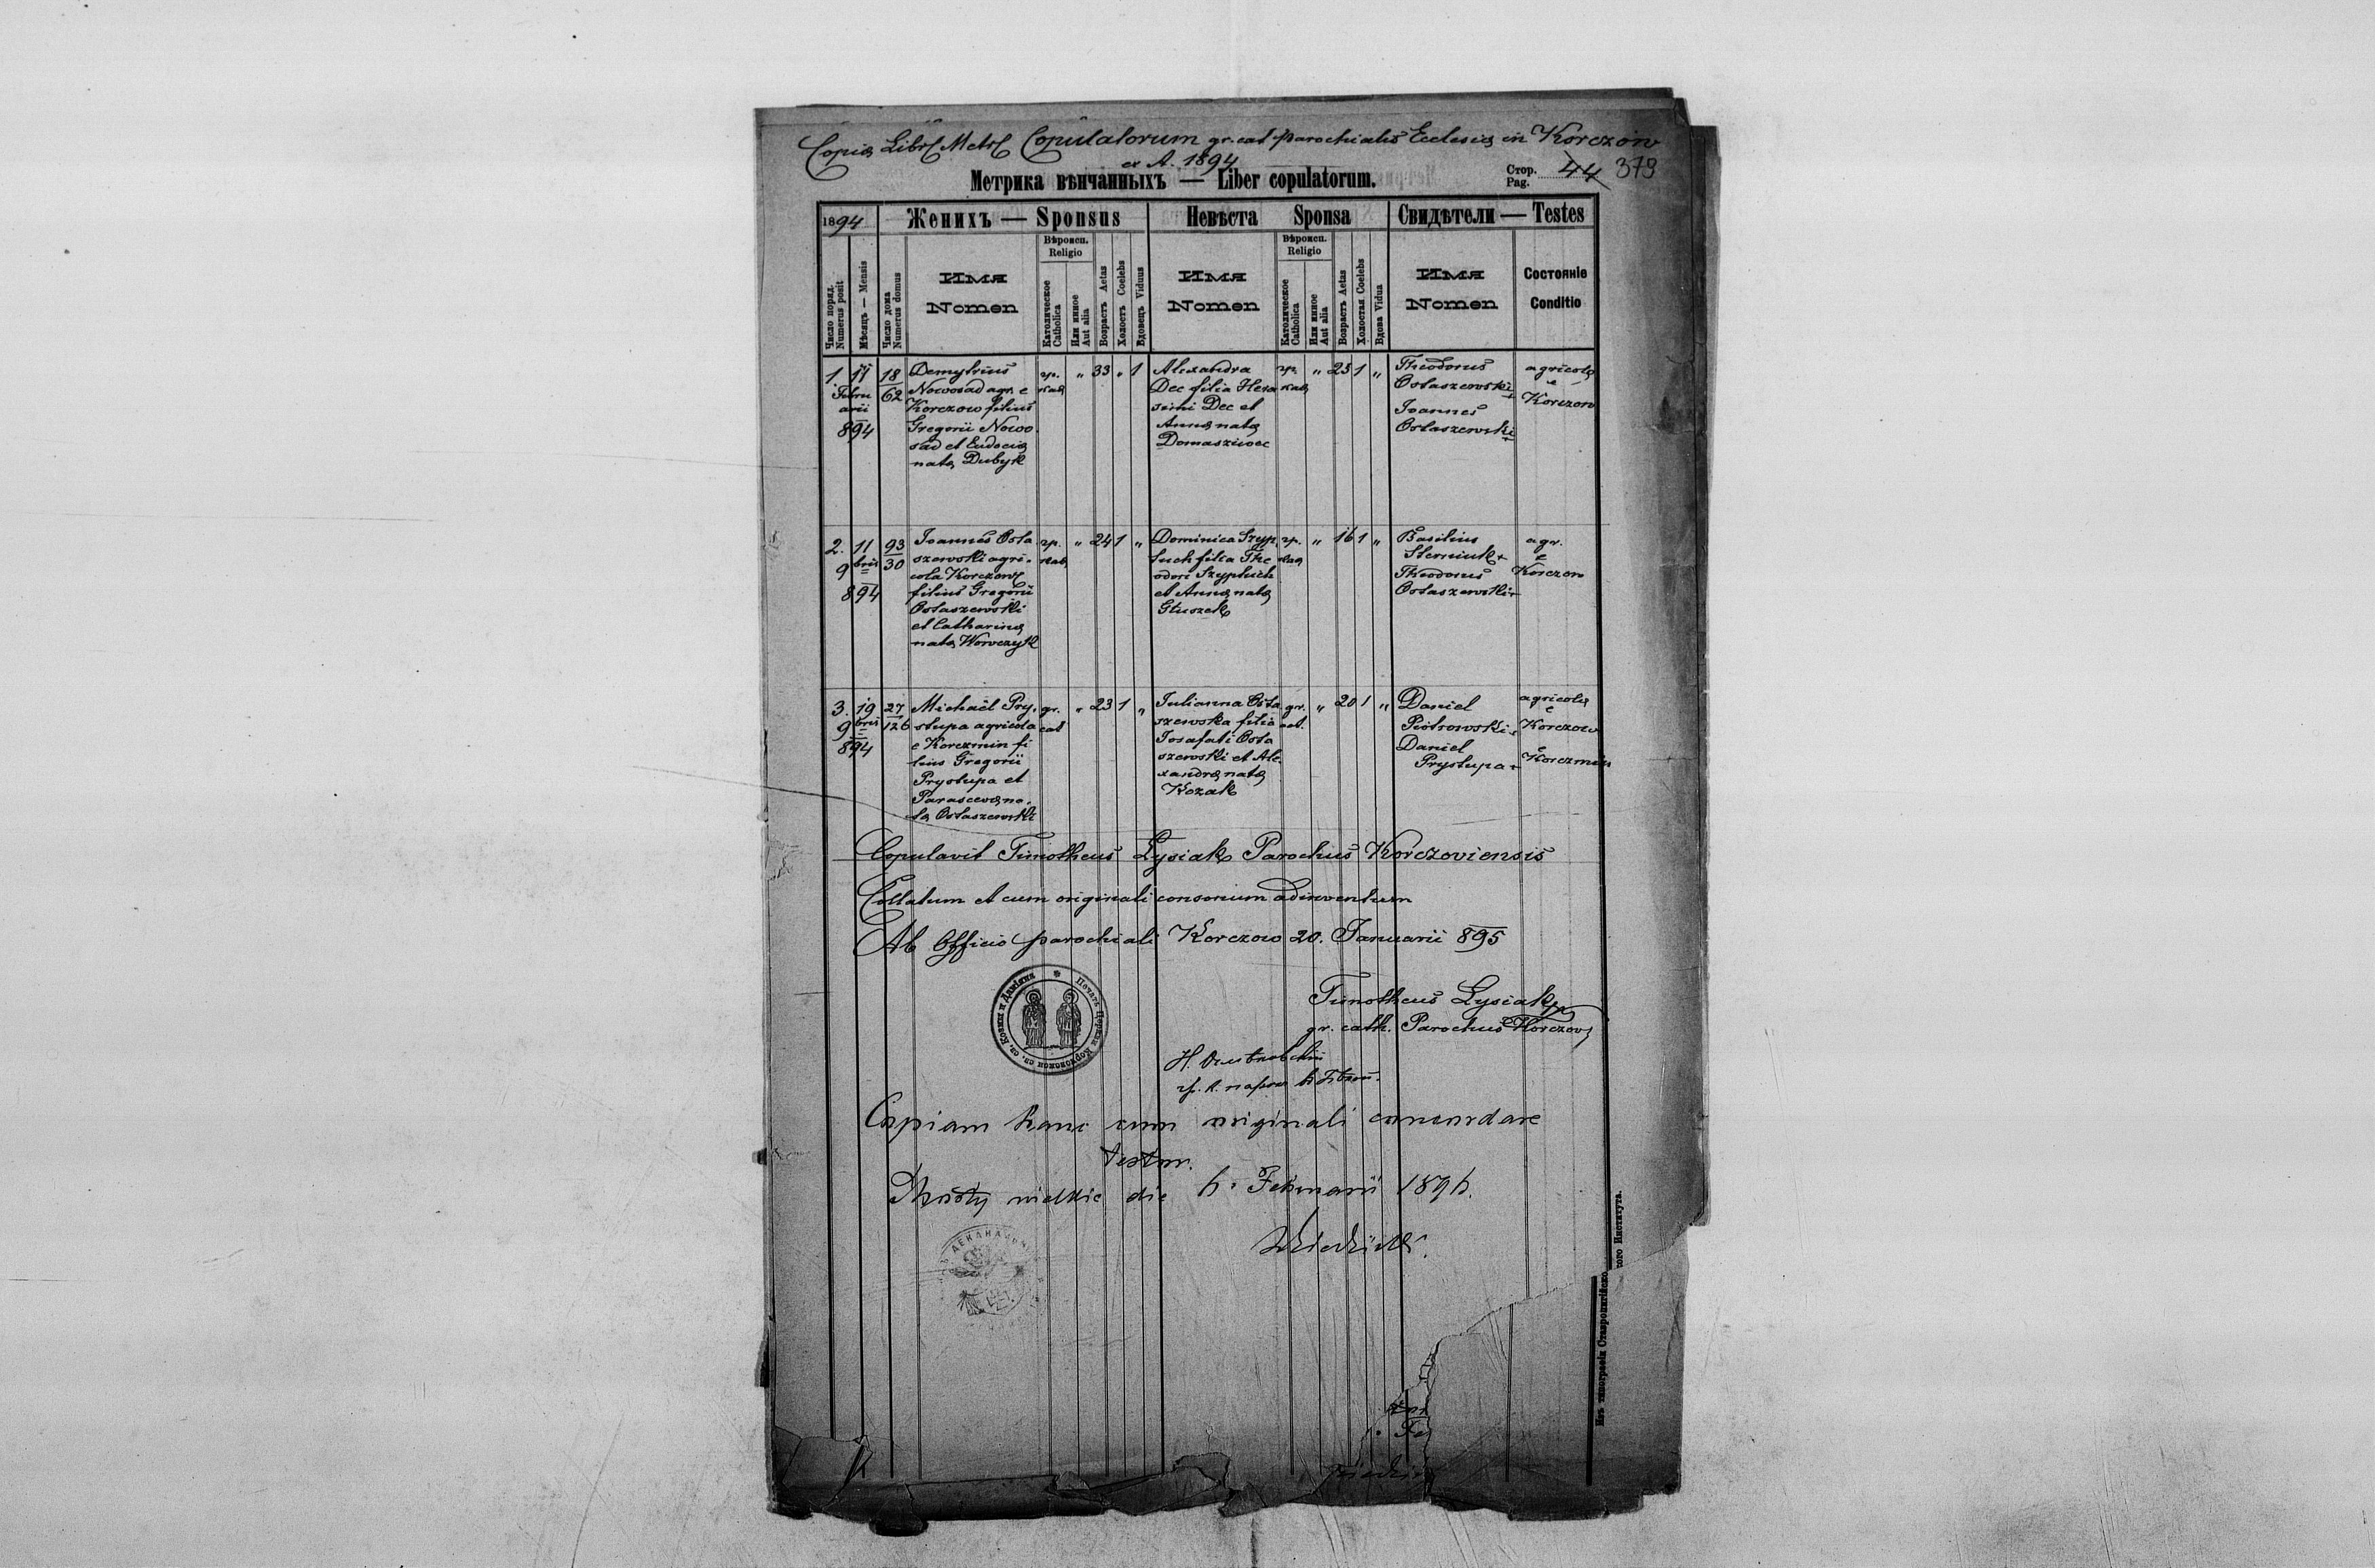 Copia Libri Metr. Copulatorum gr. cat. parochialis Ecclesiæ in Korczów
ex A. 1894
Метрика вѣнчанныхъ — Liber copulatorum.
Стор. Pag. 44 379
1894 Женихъ — Sponsus Невѣста Sponsa Свидѣтели — Testes
Число поряд. Numerus posit
Мѣсяцъ — Mensis
Число дома Numerus domus
Имя Nomen
Вѣроисп. Religio
Католическое Catholica
Или инное Aut alia
Возрастъ Aetas
Холостъ Coelebs
Вдовецъ Viduus
Имя Nomen
Вѣроисп. Religio
Католическое Catholica
Или инное Aut alia
Возрастъ Aetas
Холостая Coelebs
Вдова Vidua
Имя Nomen
Состояніе Conditio
1. 11 Febru
arii
894
18
62
Demytrius
Nowosad agr. e
Korczow filius
Gregorii Nowo
sad et Eudociæ
natæ Dubyk
гр. кат. " 33 " 1
Alexandra
Dec filia Hera
simi Dec et
Annæ natæ
Domasziwec
гр. кат. " 23 1 "
Theodorus
Ostaszewski +
Joannes
Ostaszewski +
agricolæ
e
Korczow
2. 11
9bris
894
93
30
Joannes Osta
szewski agri-
cola Korczow
filius Gregorii
Ostaszewski
et Catharinæ
natæ Worczyk
гр. кат. " 24 1 "
Dominica Szyp
tuch filia The
odori Szyptuch
et Annæ natæ
Głuszek
гр. кат. " 16 1 "
Basilius
Sterniuk +
Theodorus
Ostaszewski +
agr.
e
Korczow
3. 19
9bris
894
27
126
Michaël Pry-
stupa agricola
e Korczmin fi
lius Gregorii
Prystupa et
Parascevæ na-
tæ Ostaszewski
gr. cat " 23 1 "
Julianna Osta
szewska filia
Josafati Osta
szewski et Ale
xandræ natæ
Kozak
gr. cat. " 20 1 "
Daniel
Piotrowski +
Daniel
Prystupa +
agricolæ
e
Korczow
e
Korczmin
Copulavit Timotheus Lysiak Parochus Korczoviensis
Collatum et cum originali consonum adinventum
Ab Officio parochiali Korczow 20. Januarii 895
Печать Церкви Корчовскои св. Козмы и Даміяна
Timotheus Lysiak
gr. cath. Parochus Korczov
Copiam hanc cum originali concordare
testor.
Mosty wielkie die 6. Februarii 1896.
Изъ типографіи Ставропигійского Института.